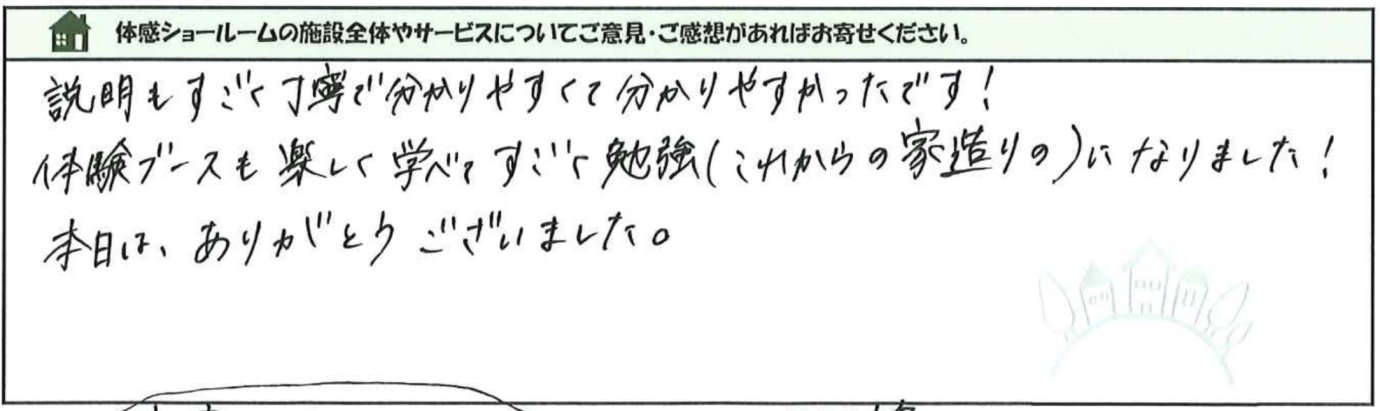 体感ショールームの施設全体やサービスについてご意見・ご感想があればお寄せください。
説明もすごく丁寧で分かりやすくて分かりやすかったです!
体験ブースも楽しく学べてすごく勉強(これからの家造りの)になりました!
本日は、ありがとうございました。